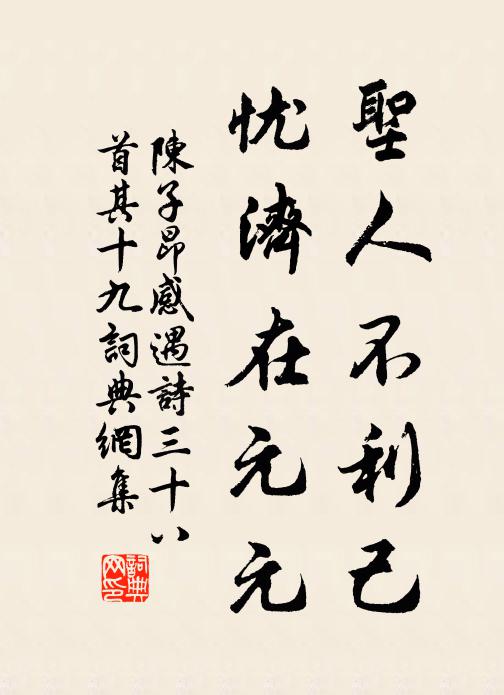 聖人不利己
忧濟在元元
陳子昂感遇詩三十八
首其十九詞典網集
詞典
网印